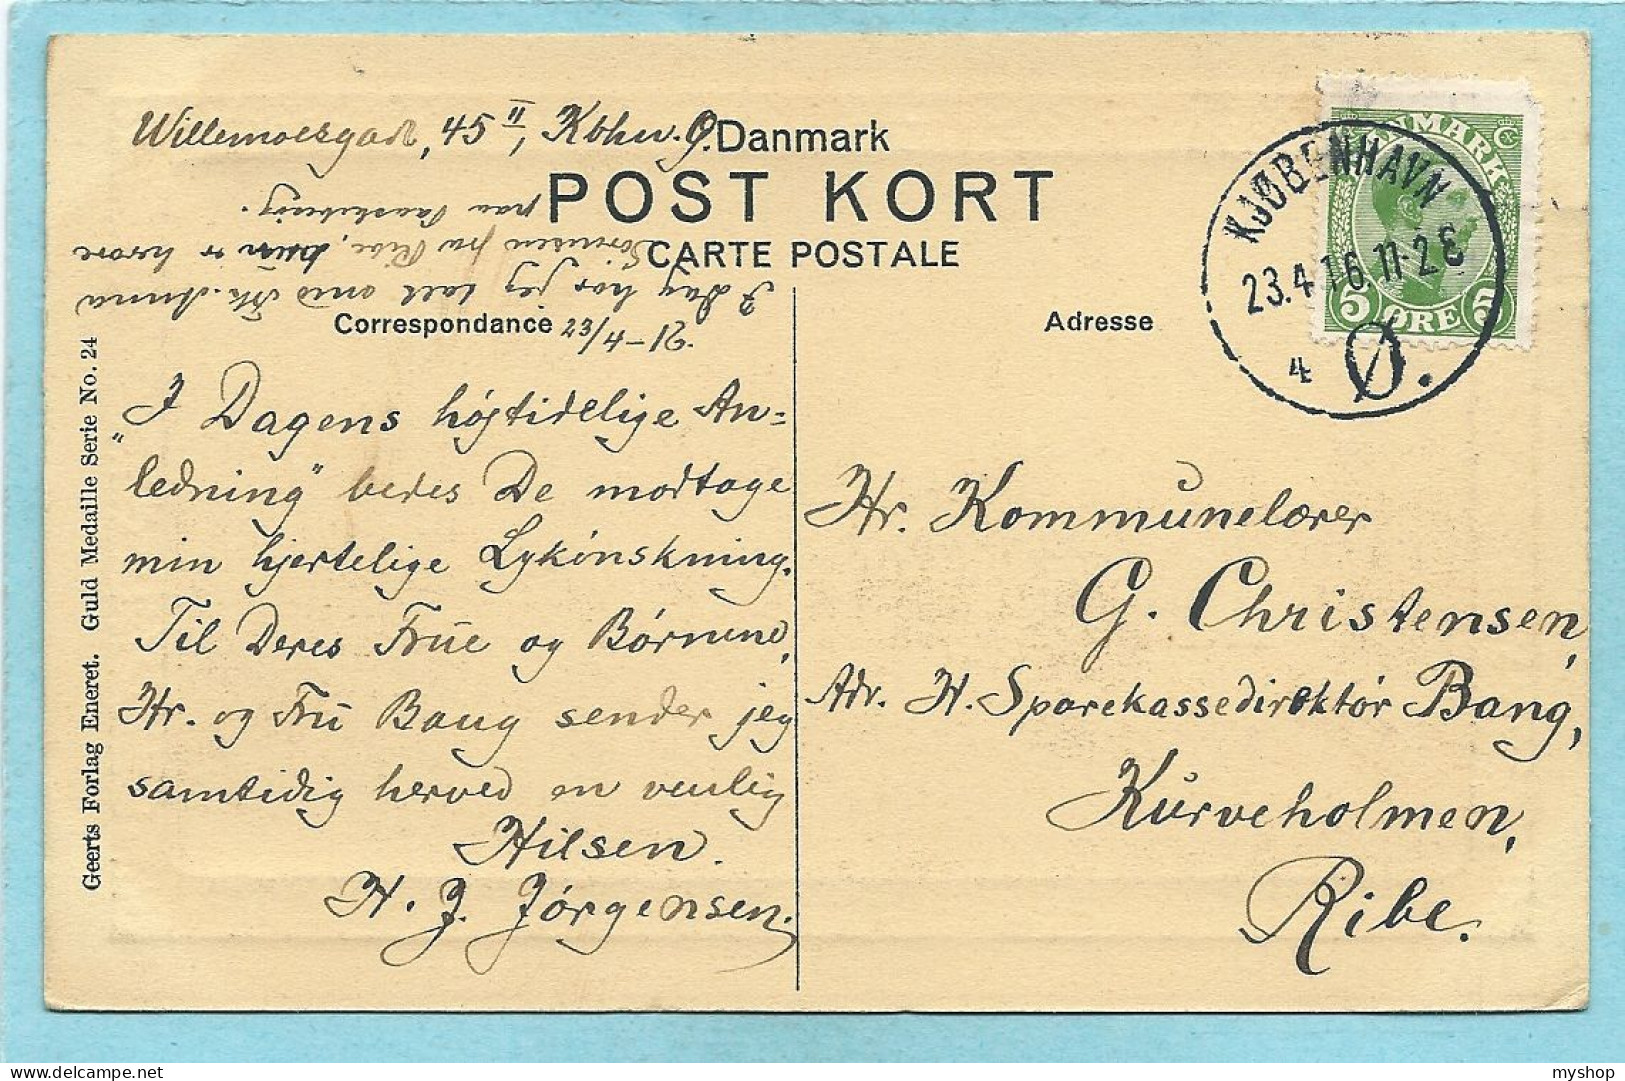 Willemoesgade, 45 II, Kbhv. Ø.
Danmark
POST KORT
CARTE POSTALE
Correspondance
Adresse
23/4-16.
I Dag har jeg talt med Frk. Anna
Sørensen fra Ribe, hun er herovre
paa Paaskebesøg.
"I Dagens højtidelige An=
ledning" bedes De modtage
min hjertelige Lykønskning.
Til Deres Frue og Børnene,
Hr. og Fru Bang sender jeg
samtidig herved en venlig
Hilsen.
H. J. Jørgensen.
Hr. Kommunelærer
G. Christensen,
Adr. H. Sparekassedirektør Bang,
Kurveholmen,
Ribe.
Geerts Forlag Eneret. Guld Medaille Serie No. 24
KJØBENHAVN
23.4.16. 11-2 E
4 Ø.
DANMARK
5 ØRE 5
myshop